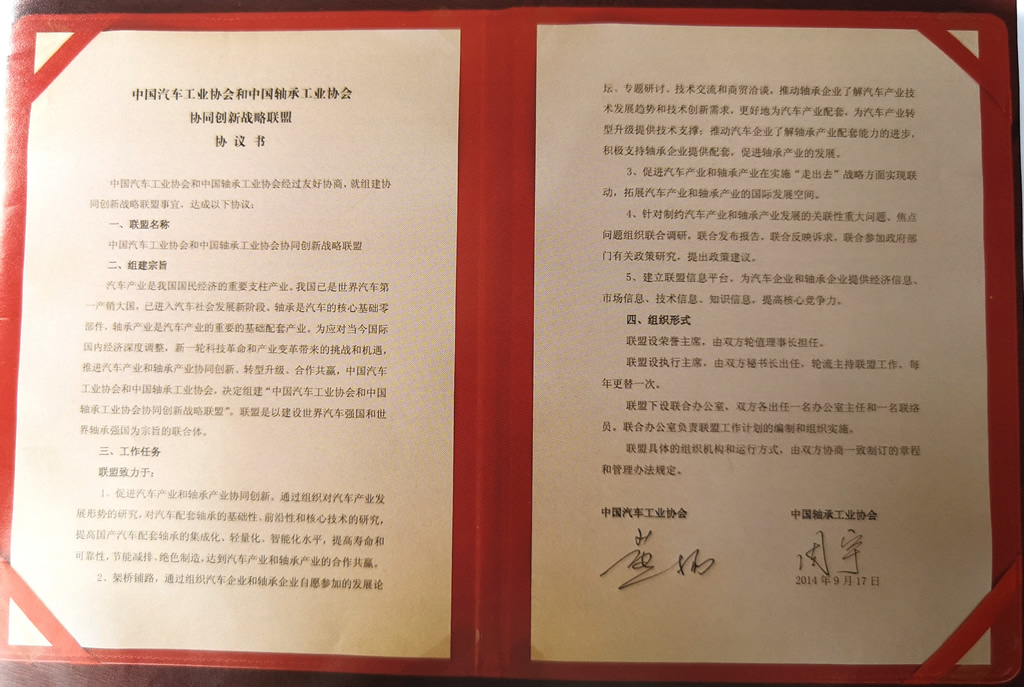 中国汽车工业协会和中国轴承工业协会
协同创新战略联盟
协 议 书
中国汽车工业协会和中国轴承工业协会经过友好协商，就组建协
同创新战略联盟事宜，达成以下协议：
一、联盟名称
中国汽车工业协会和中国轴承工业协会协同创新战略联盟
二、组建宗旨
汽车产业是我国国民经济的重要支柱产业。我国已是世界汽车第
一产销大国，已进入汽车社会发展新阶段。轴承是汽车的核心基础零
部件，轴承产业是汽车产业的重要的基础配套产业。为应对当今国际
国内经济深度调整，新一轮科技革命和产业变革带来的挑战和机遇，
推进汽车产业和轴承产业协同创新、转型升级、合作共赢，中国汽车
工业协会和中国轴承工业协会，决定组建“中国汽车工业协会和中国
轴承工业协会协同创新战略联盟”。联盟是以建设世界汽车强国和世
界轴承强国为宗旨的联合体。
三、工作任务
联盟致力于：
1、促进汽车产业和轴承产业协同创新。通过组织对汽车产业发
展形势的研究，对汽车配套轴承的基础性、前沿性和核心技术的研究，
提高国产汽车配套轴承的集成化、轻量化、智能化水平，提高寿命和
可靠性，节能减排、绝色制造，达到汽车产业和轴承产业的合作共赢。
2、架桥铺路，通过组织汽车企业和轴承企业自愿参加的发展论
坛、专题研讨、技术交流和商贸洽谈，推动轴承企业了解汽车产业技
术发展趋势和技术创新需求，更好地为汽车产业配套，为汽车产业转
型升级提供技术支撑；推动汽车企业了解轴承产业配套能力的进步，
积极支持轴承企业提供配套，促进轴承产业的发展。
3、促进汽车产业和轴承产业在实施“走出去”战略方面实现联
动，拓展汽车产业和轴承产业的国际发展空间。
4、针对制约汽车产业和轴承产业发展的关联性重大问题、焦点
问题组织联合调研，联合发布报告，联合反映诉求，联合参加政府部
门有关政策研究，提出政策建议。
5、建立联盟信息平台，为汽车企业和轴承企业提供经济信息、
市场信息、技术信息、知识信息，提高核心竞争力。
四、组织形式
联盟设荣誉主席，由双方轮值理事长担任。
联盟设执行主席，由双方秘书长出任，轮流主持联盟工作，每
年更替一次。
联盟下设联合办公室，双方各出任一名办公室主任和一名联络
员。联合办公室负责联盟工作计划的编制和组织实施。
联盟具体的组织机构和运行方式，由双方协商一致制订的章程
和管理办法规定。
中国汽车工业协会 中国轴承工业协会
周宇
2014 年 9 月 17 日